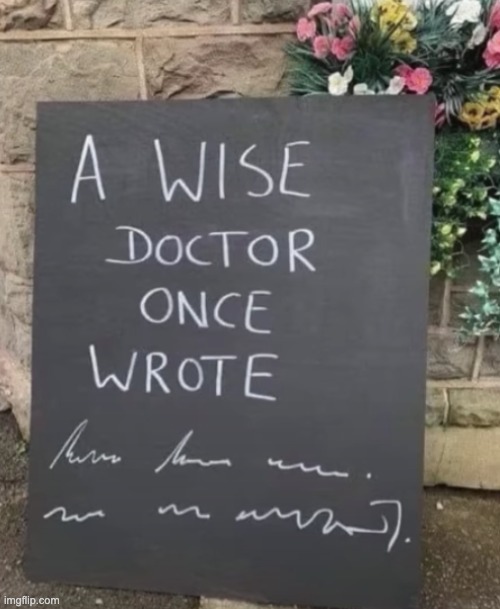 A WISE
DOCTOR
ONCE
WROTE
imgflip.com